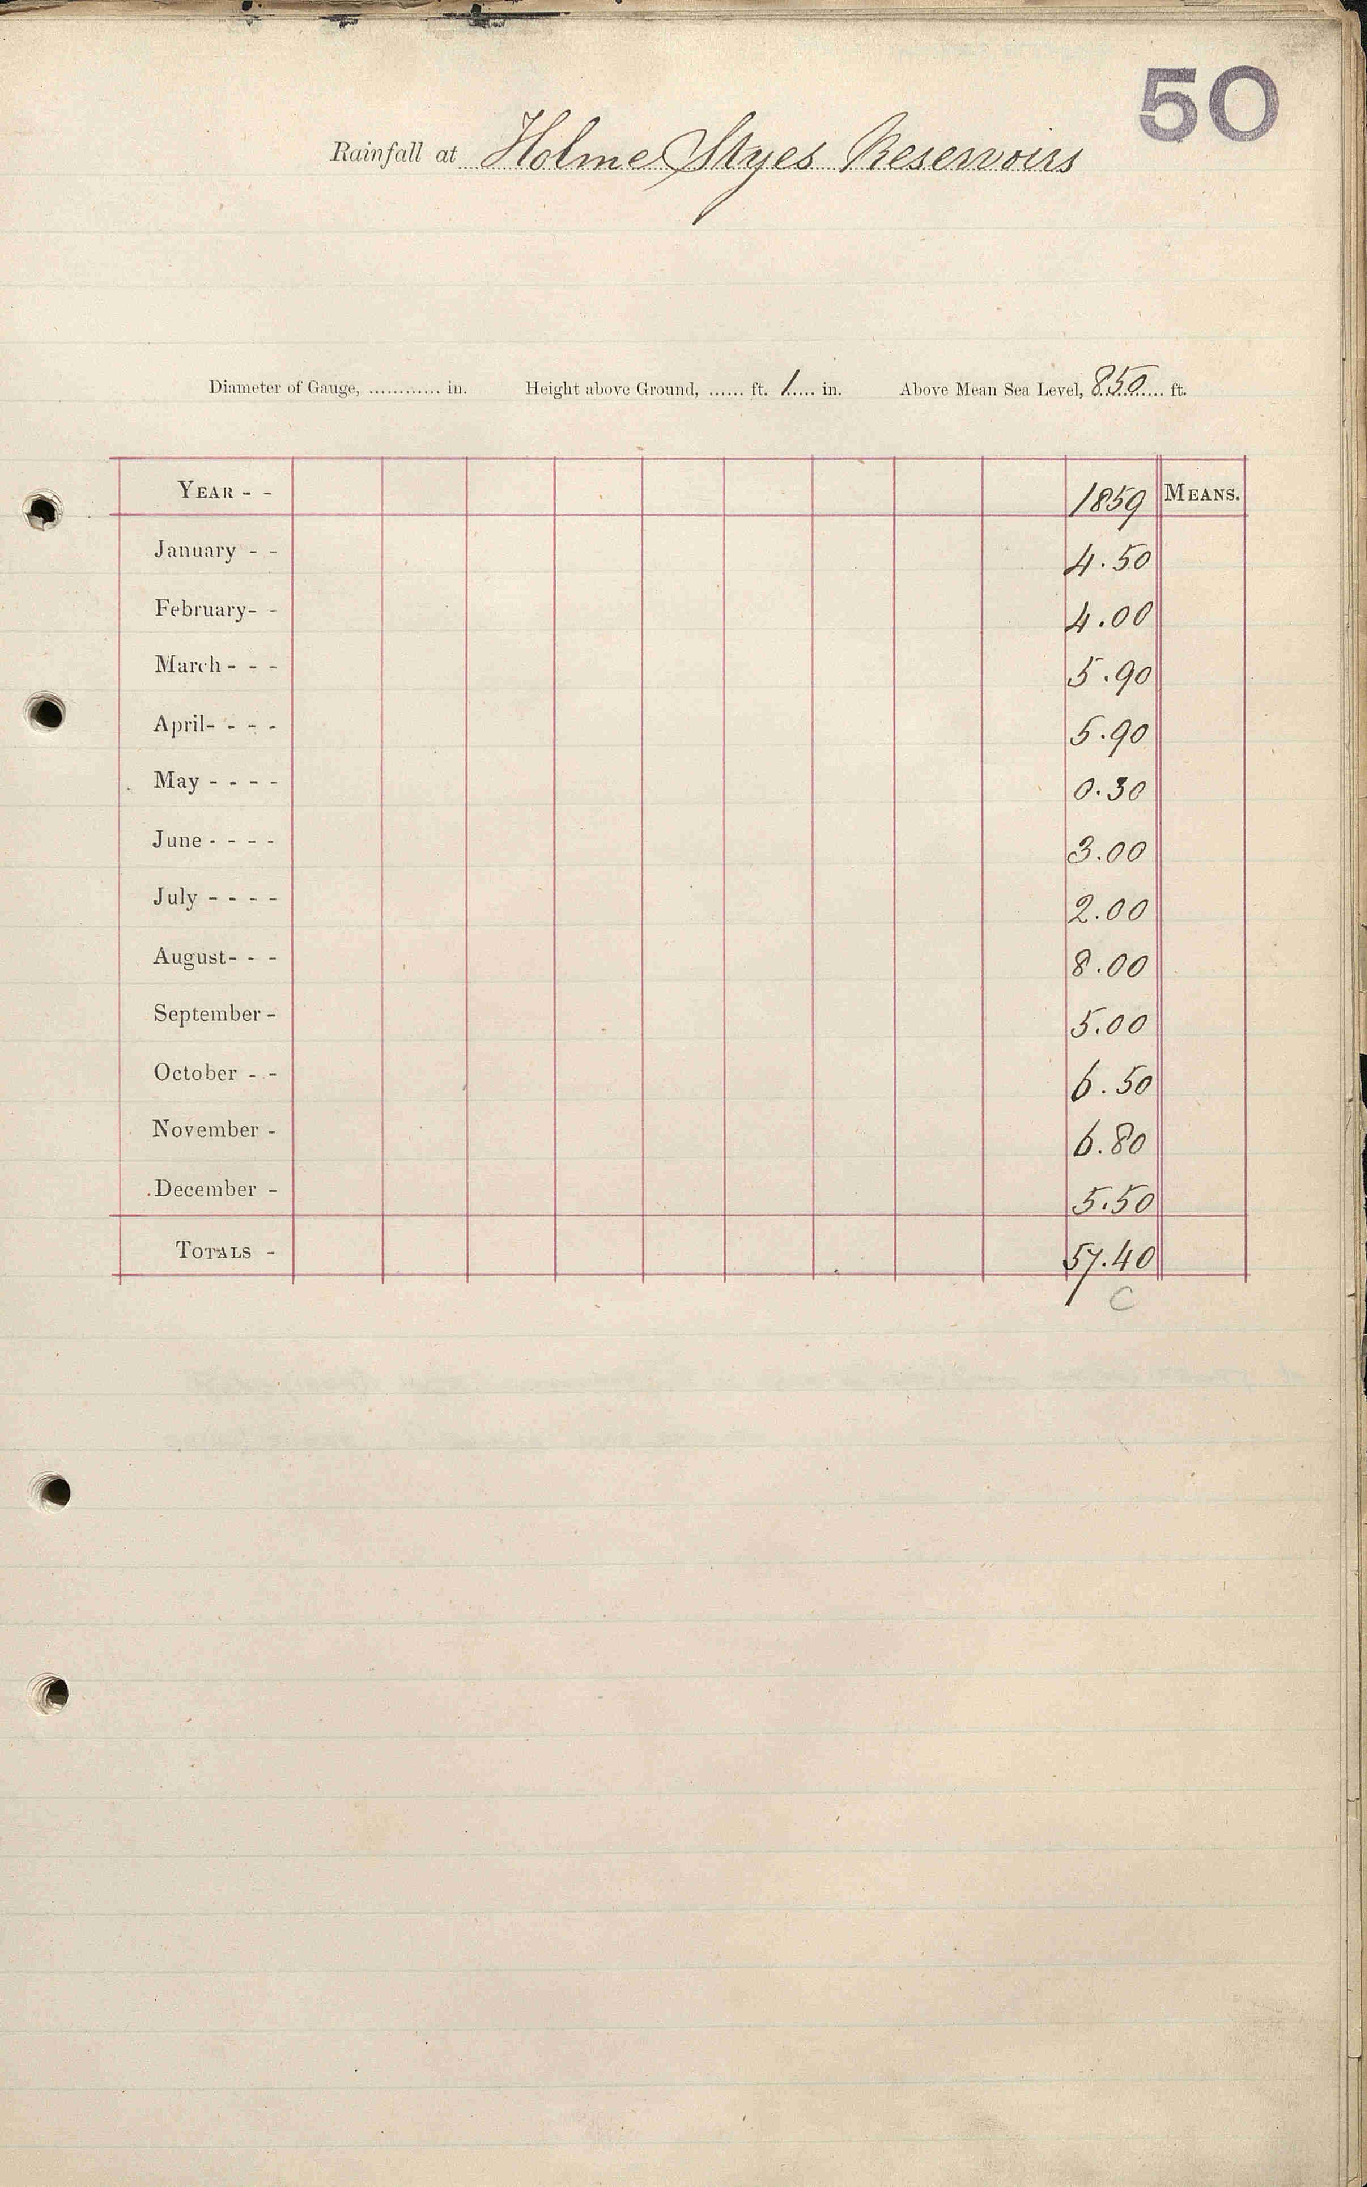 50
Rainfall at Holme Styes Reservoirs
Diameter of Gauge, ............ in. Height above Ground, ...... ft. 1 in. Above Mean Sea Level, 850 ft.
YEAR - - 1859 MEANS.
January - - 4.50
February- - 4.00
March - - - 5.90
April- - - - 5.90
May - - - - 0.30
June - - - - 3.00
July - - - - 2.00
August- - - 8.00
September - 5.00
October - - 6.50
November - 6.80
December - 5.50
TOTALS - 57.40
C